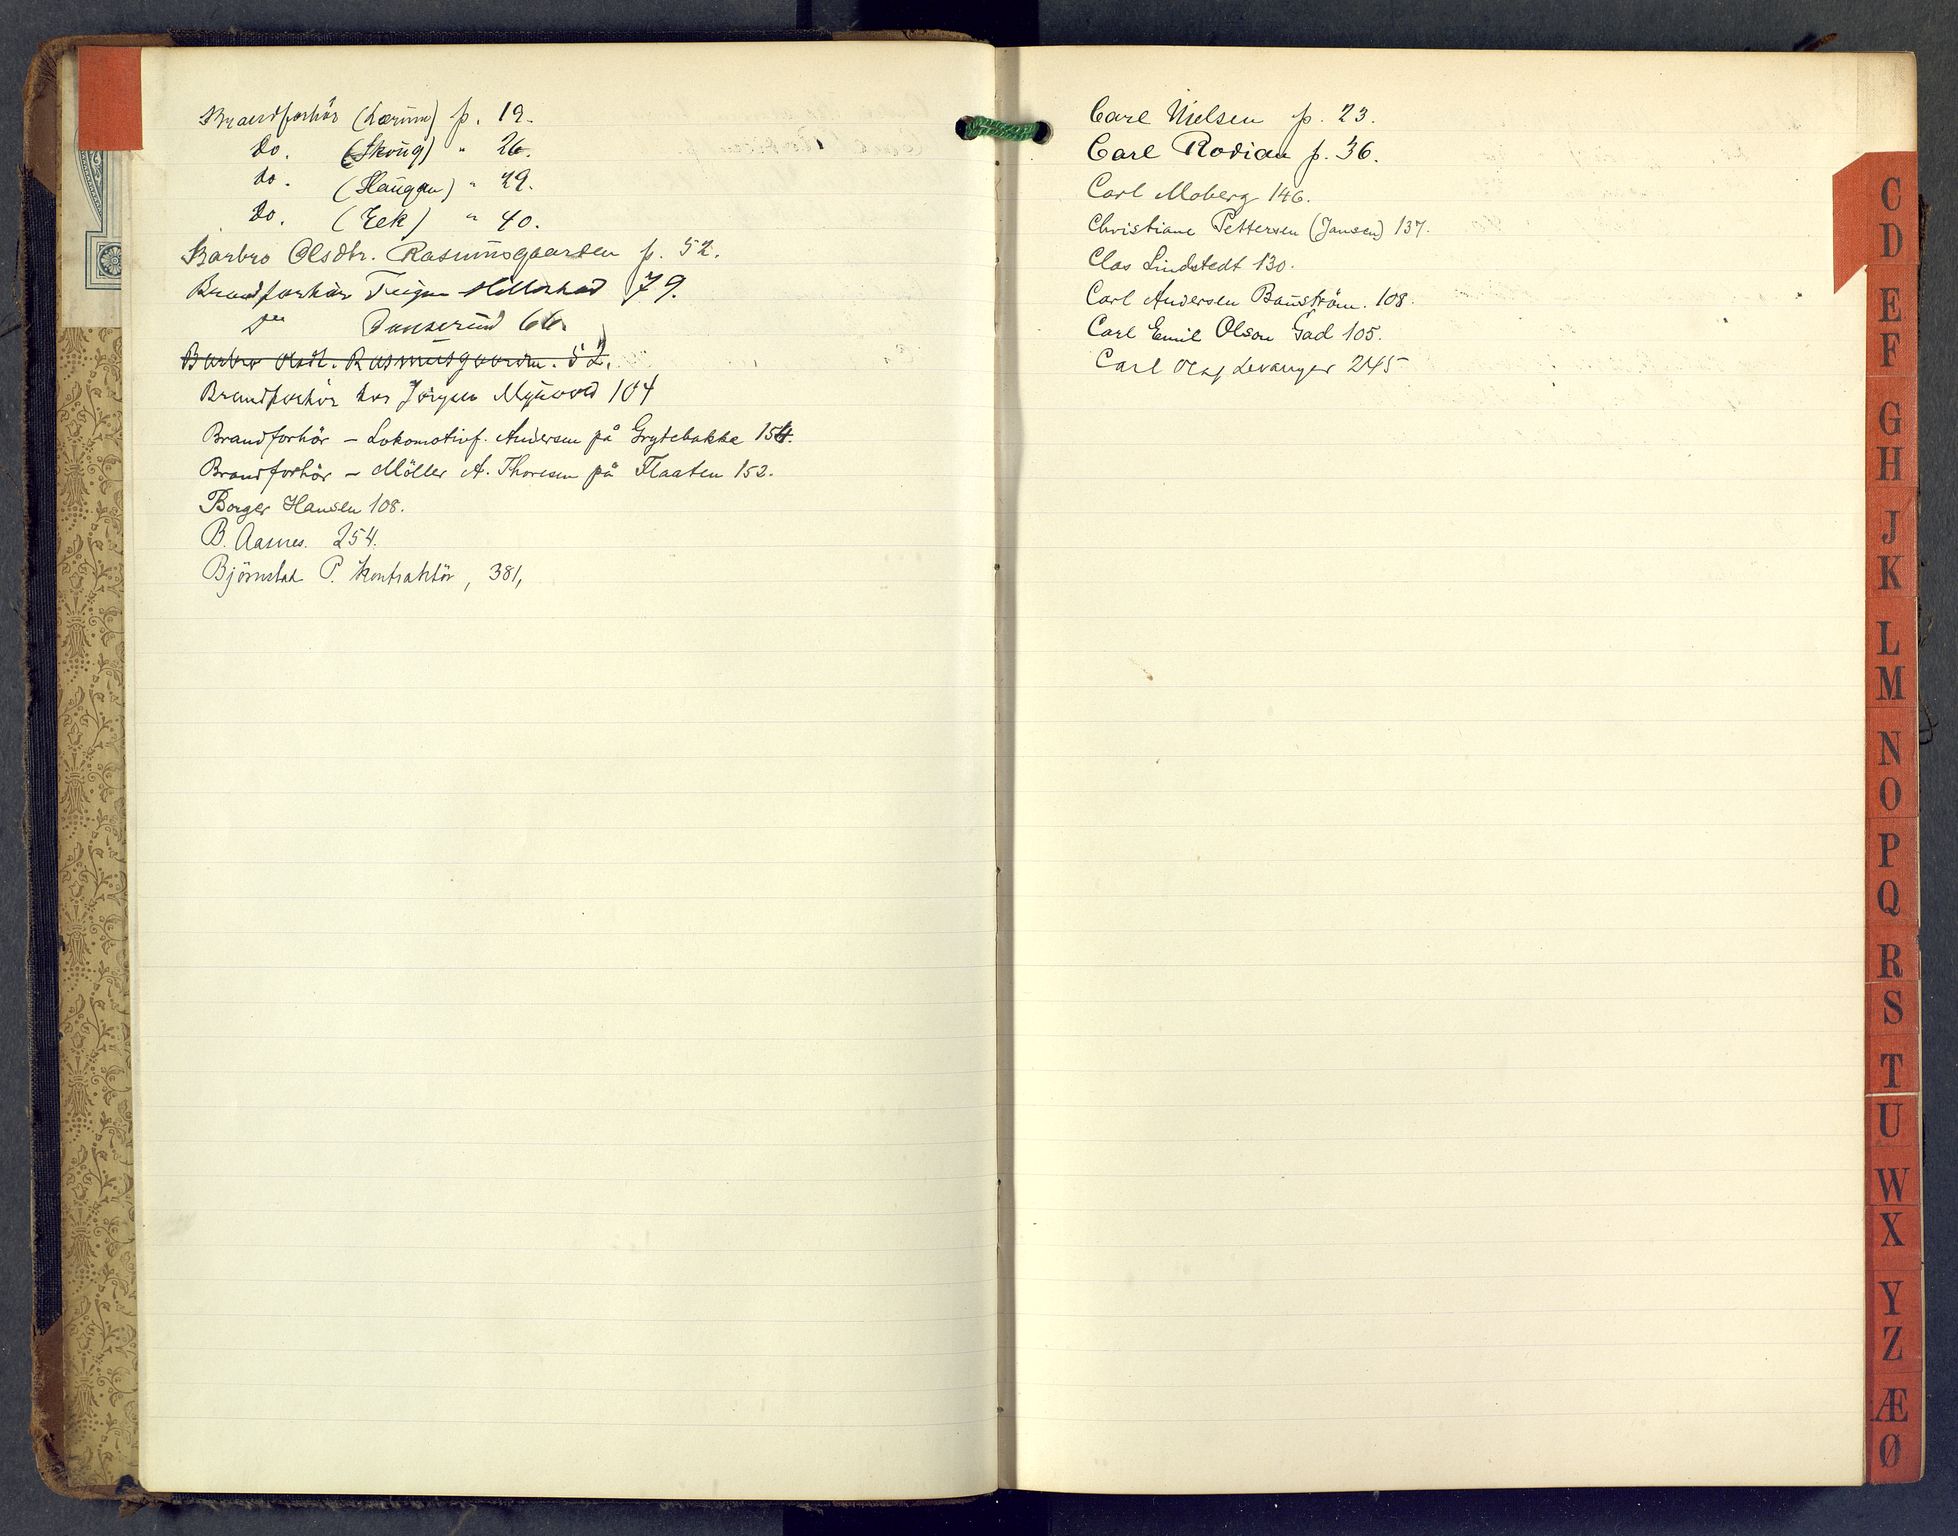 Brandforhör (Lærum) p. 19.
Do. (Skoug) " 26.
do. (Haugen) " 29.
Do. (Eek) " 40.
Barbro Olsdtr. Rasmusgaarden p. 52.
Brandforhör Teigen 79.
Do Danserud 66.
Barbro Olsdt. Rasmusgaarden. 52.
Brandforhör hos Jörgen 104
Brandforhör – Lokomotivf. Andersen på Grytebakke 154.
Brandforhör – Möller A. Thoresen på Flaaten 152.
Borger Hansen 108.
B. Aasnes. 254.
Björnstad P. kontraktör, 381,
Carl Nielsen p. 23.
Carl Rodian p. 36.
Carl Moberg 146.
Christiane Pettersen (Jansen) 137.
Clas Lindstedt 130.
Carl Andersen Bauström. 108.
Carl Emil Olson Gad 105.
Carl Olaf Levanger 245
C
D
E
F
G
H
J
K
L
M
N
O
P
Q
R
S
T
U
W
X
Y
Z
Æ
Ø